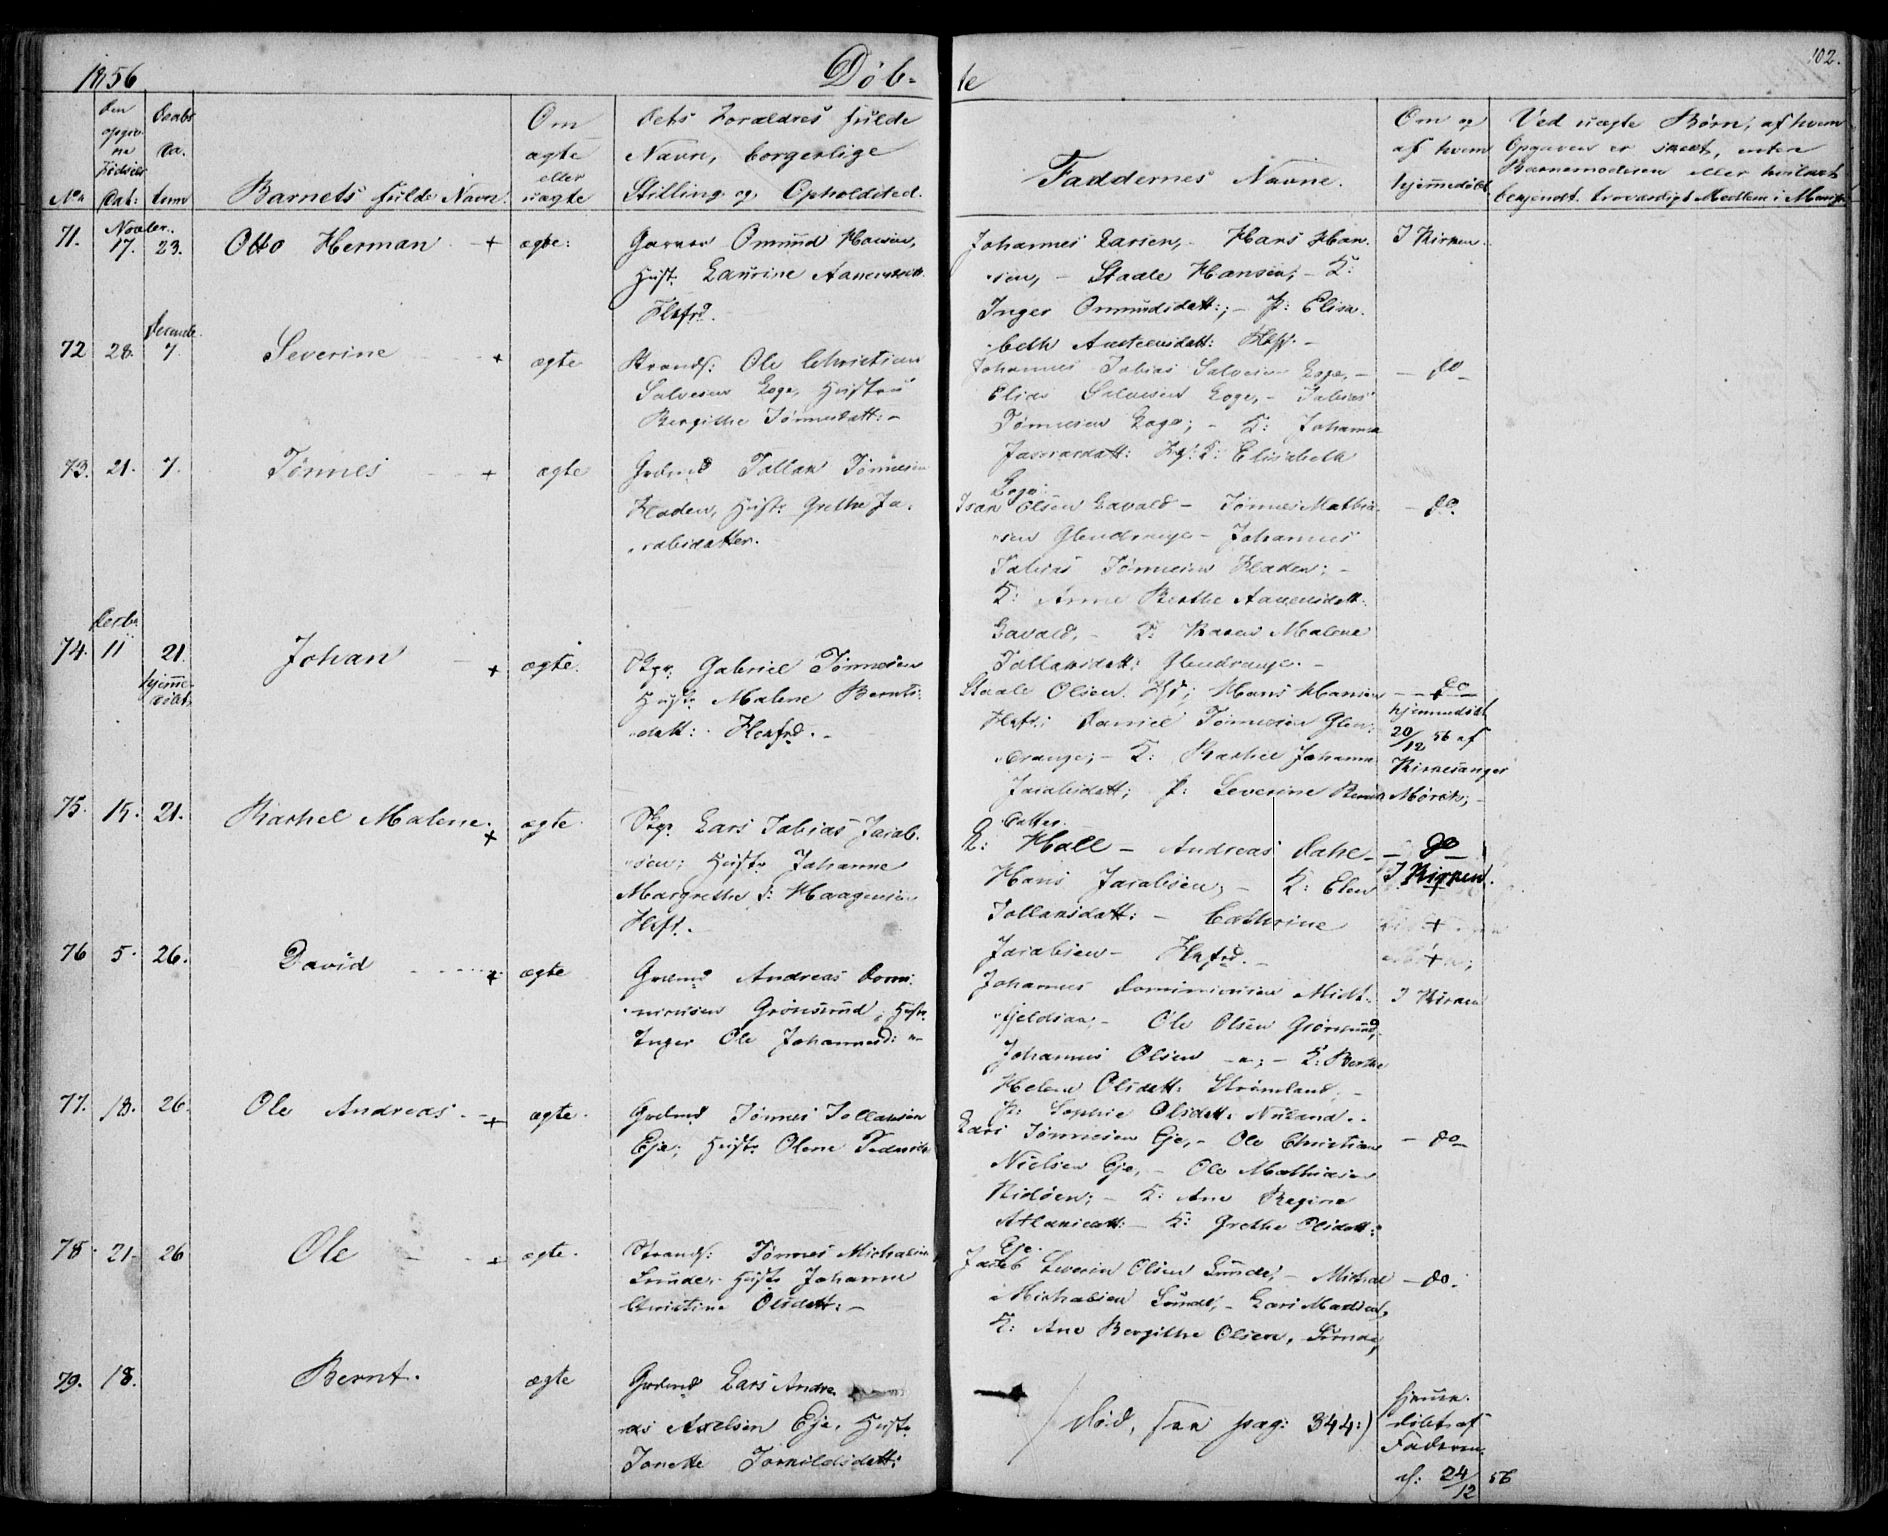 1856
Døb-
te
102.
Den opgivne Fødsels Dat:
Daabs Da. tom
No
Barnets fulde Navn.
Om ægte eller uægte
Dets Forældres fulde
Navn, borgerlige
Stilling og Opholdsted.
Faddernes Navne.
Om og
af hvem
hjemmedøbt
Ved uægte Børn, af hvem
Opgaven er skeet, enten
Barnemoderen eller hvilket
bekjendt troværdigt Medlem i Menigh
71.
Novbr.
17.
23.
Otto Herman +
ægte:
Garver Omund Hansen,
Hust: Laurine Aanensdatt:
Flkfrd.
Johannes Larsen, - Hans Han-
sen, - Staale Hansen; - K:
Inger Omundsdatt:; - P: Elisa-
beth Austensdatt: Flkff. -
I Kirken.
72
28.
Decembr.
7.
Severine +
ægte
Strands: Ole Christian
Salvesen Loge, Hustru
Bergithe Tønnesdatt: -
Johannes Tobias Salvesen Loge, -
Elias Salvesen Loge, - Tobias
Tønnesen Loge; - K: Johanna
P: Elisabeth
Loge:
- do -
73.
21.
7.
Tønnes - - +
ægte
Grdmd Tollak Tønnesen
Fladen, Hustr: Grethe Ja-
cobsdatter.
Olsen Lavold - Tønnes Mathia-
sen Glendrange - Johannes
Tobias Tønnesen Fladen; -
K: Anne Berthe Aanensdatt:
Lavold, - P: Karen Malene
Tollaksdatt: Glendrange. -
- do.
74.
Decbr.
11
21.
hjemme-
døbt
Johan - +
ægte.
Skpr: Gabriel Tønnesen
Hust: Malene Bernts-
datt: Flekfrd. -
Staale Olsen Hans Hansen
Flkfr: Daniel Tønnesen Glen-
drange; - K: Rachel Johanne
Jacobsdatt; P: Severine Bernts
datter.
- do -
hjemmedøbt
20/12 56 af
Kirkesanger
Mørch; -
75.
15.
21.
Rachel Malene. +
ægte.
Skpr Lars Tobias Jacob-
sen; Hustr: Johanne
Margrethe f: Haagensen
Flkf.
L: Hall - Andreas Dahl -
Hans Jacobsen, - K: Elen
Tollaksdatt: - Cathrine
Jacobsen - Flkfrd. -
- do -
I Kirken.
+
+
76
5.
26.
David - - - - +
ægte
Grdmd Andreas Domi-
nicusen Grønsund, Hustr.
Inger Ole Johannesd:
Johannes Dominicusen Midt-
fjeldsaa; - Ole Olsen Grønsund,
Johannes Olsen - " ; - K: Berthe
Helene Olsdatt: Strømland; -
P: Sophie Olsdatt: Nuland. -
I Kirken
77.
18.
26.
Ole Andreas. - +
ægte.
Grdmd Tønnes Tollaksen
Eje; Hustr: Olene
Lars Tønnesen Eje, - Ole Christian
Nielsen Eje, - Ole Mathiasen
Hidøen; - K: Ane Regine
Atlaksdatt: - K: Grethe Olsdatt:
Eje.
- do -
78.
21.
26
Ole - - +
ægte.
Strands: Tønnes Michalsen
Sunde, Hustr: Johanne
Christine Olsdatt: -
Jacob Severin Olsen Sunde; - Michal
Michalsen Sunde, - Lars Madsen,
K: Ane Bergithe Olsen, Sunde,
- do.
79.
18.
Bernt.
ægte
Grdmd Lars Andre
as Axelsen Eje, Hustr:
Jonette Torkildsdatt:
/ død, see pag: 344:)
hjemme-
døbt af
Faderen
d: 24/12 56